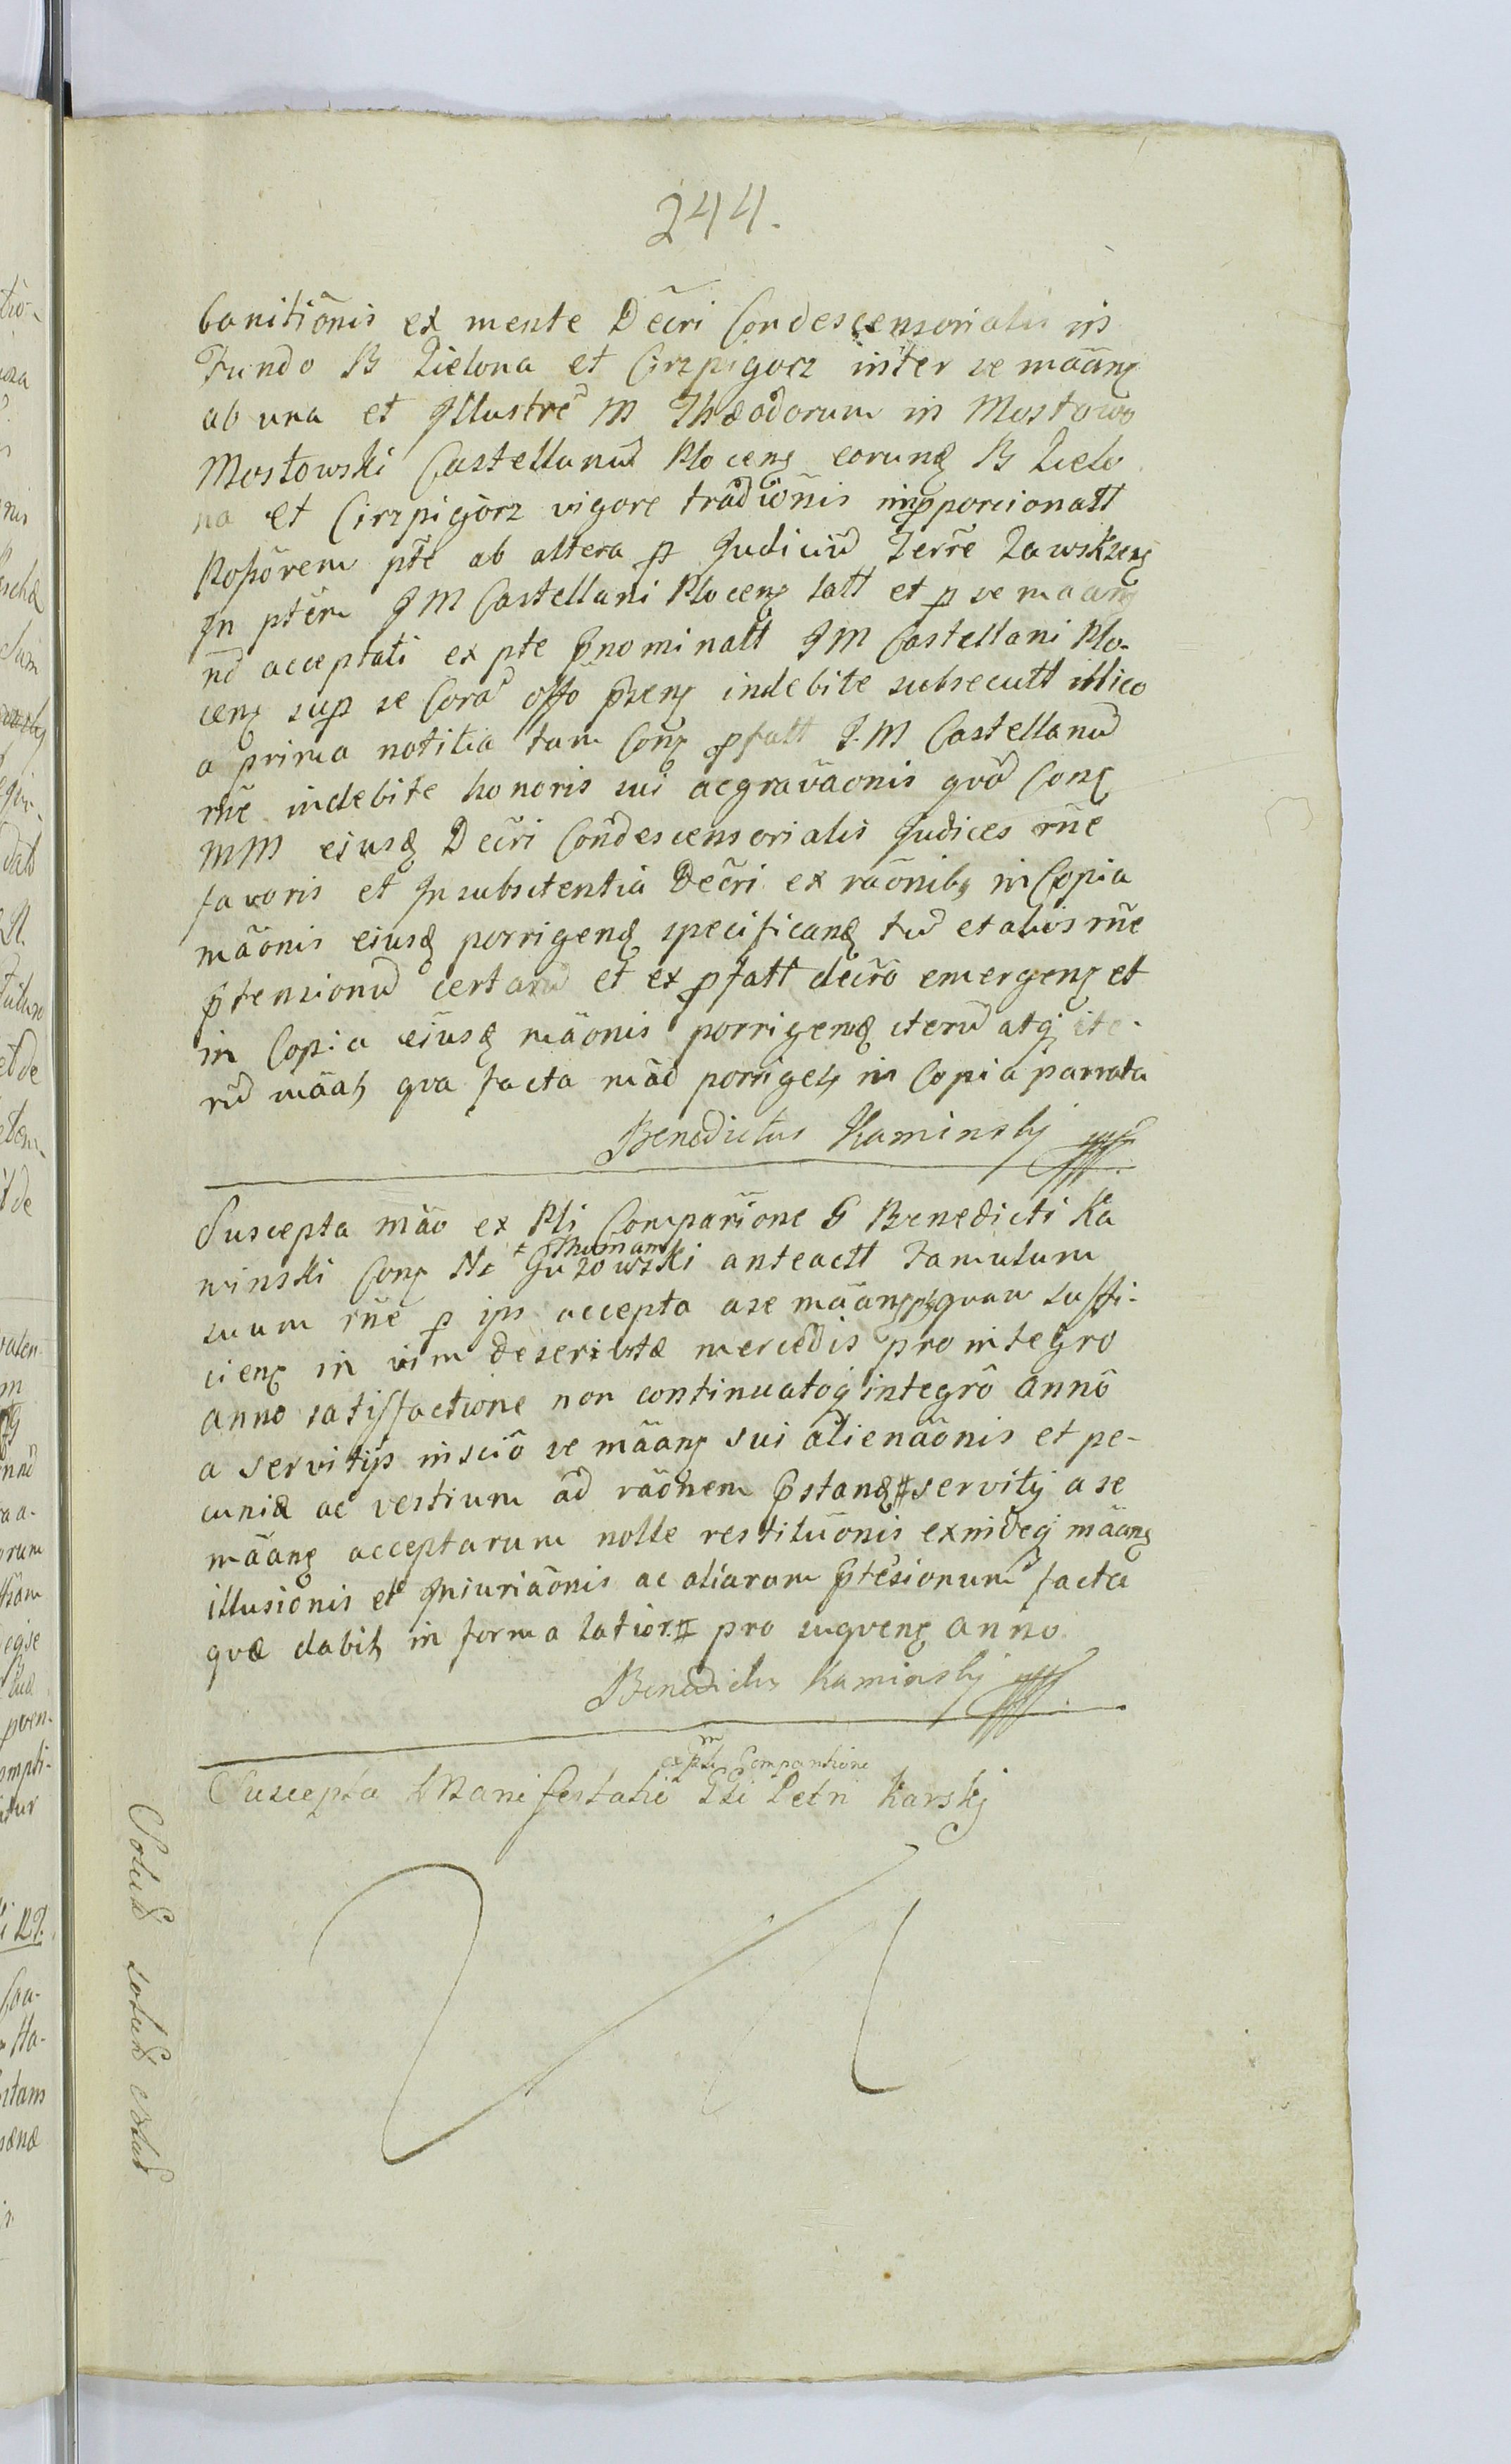 244.
banitiōnis ex mente Decri Condescensorialis in
Fundo B Zielona et Cirzpigorz inter se māang
ab una et Illustrē M Theodorum in Mostowo
Mostowski Castellanū Ploceng eorung B Zielo
na et Cirzpigorz vigore tradiōnis impporcionatt
Poßorem pte ab altera p Judiciū Terrē Zawskreng
In pterm JM Castellani Ploceng latt et p se māang
nō acceptati ex pte p̄nominatt JM Castellani Plo-
ceng sup se Corā offo p̄seng indebite subsecutt illico
a prima notitia tam Cong pfatt J.M Castellanū
rñe indebite honoris sui aggravāonis qvō Cong
MM eiusq Decri Condescensorialis Judices rñe
favoris et Insubsitentia Decri ex raōnibq in Copia
māonis eiusq porrigenq specificanq tū et alios rñe
p̄tensionū certarū et ex pfatt decrō emergeng et
in Copia eiusq māonis porrigenq iterū atq ite-
rū māat qva facta māo porriget in Copia parrata
Benedictus Kaminsky
Suscepta māo ex Pli Compariōne G Benedicti Ka
minski Cong Nr Guzowski anteactt Famulum
suum rñe p ips accepta a se māang quam suffi-
cieng in vim deseribtæ mercedis pro integro
anno satisfactione non continuatoq integrō annō
a servitijs insciō se māang sui alienāonis et pe-
cuniæ ac vestium ad raōnem p̄stanq servitij a se
māang acceptarum nolle restituōnis exnideq māang
illusionis et Iniuriāonis ac aliarum p̄tēsionum facta
qvæ dabit in forma latiori pro sugveng anno.
Benedictus Kaminsky
ex pte Compartione
Suscepta Manifestatio Gsi Petri Karskj